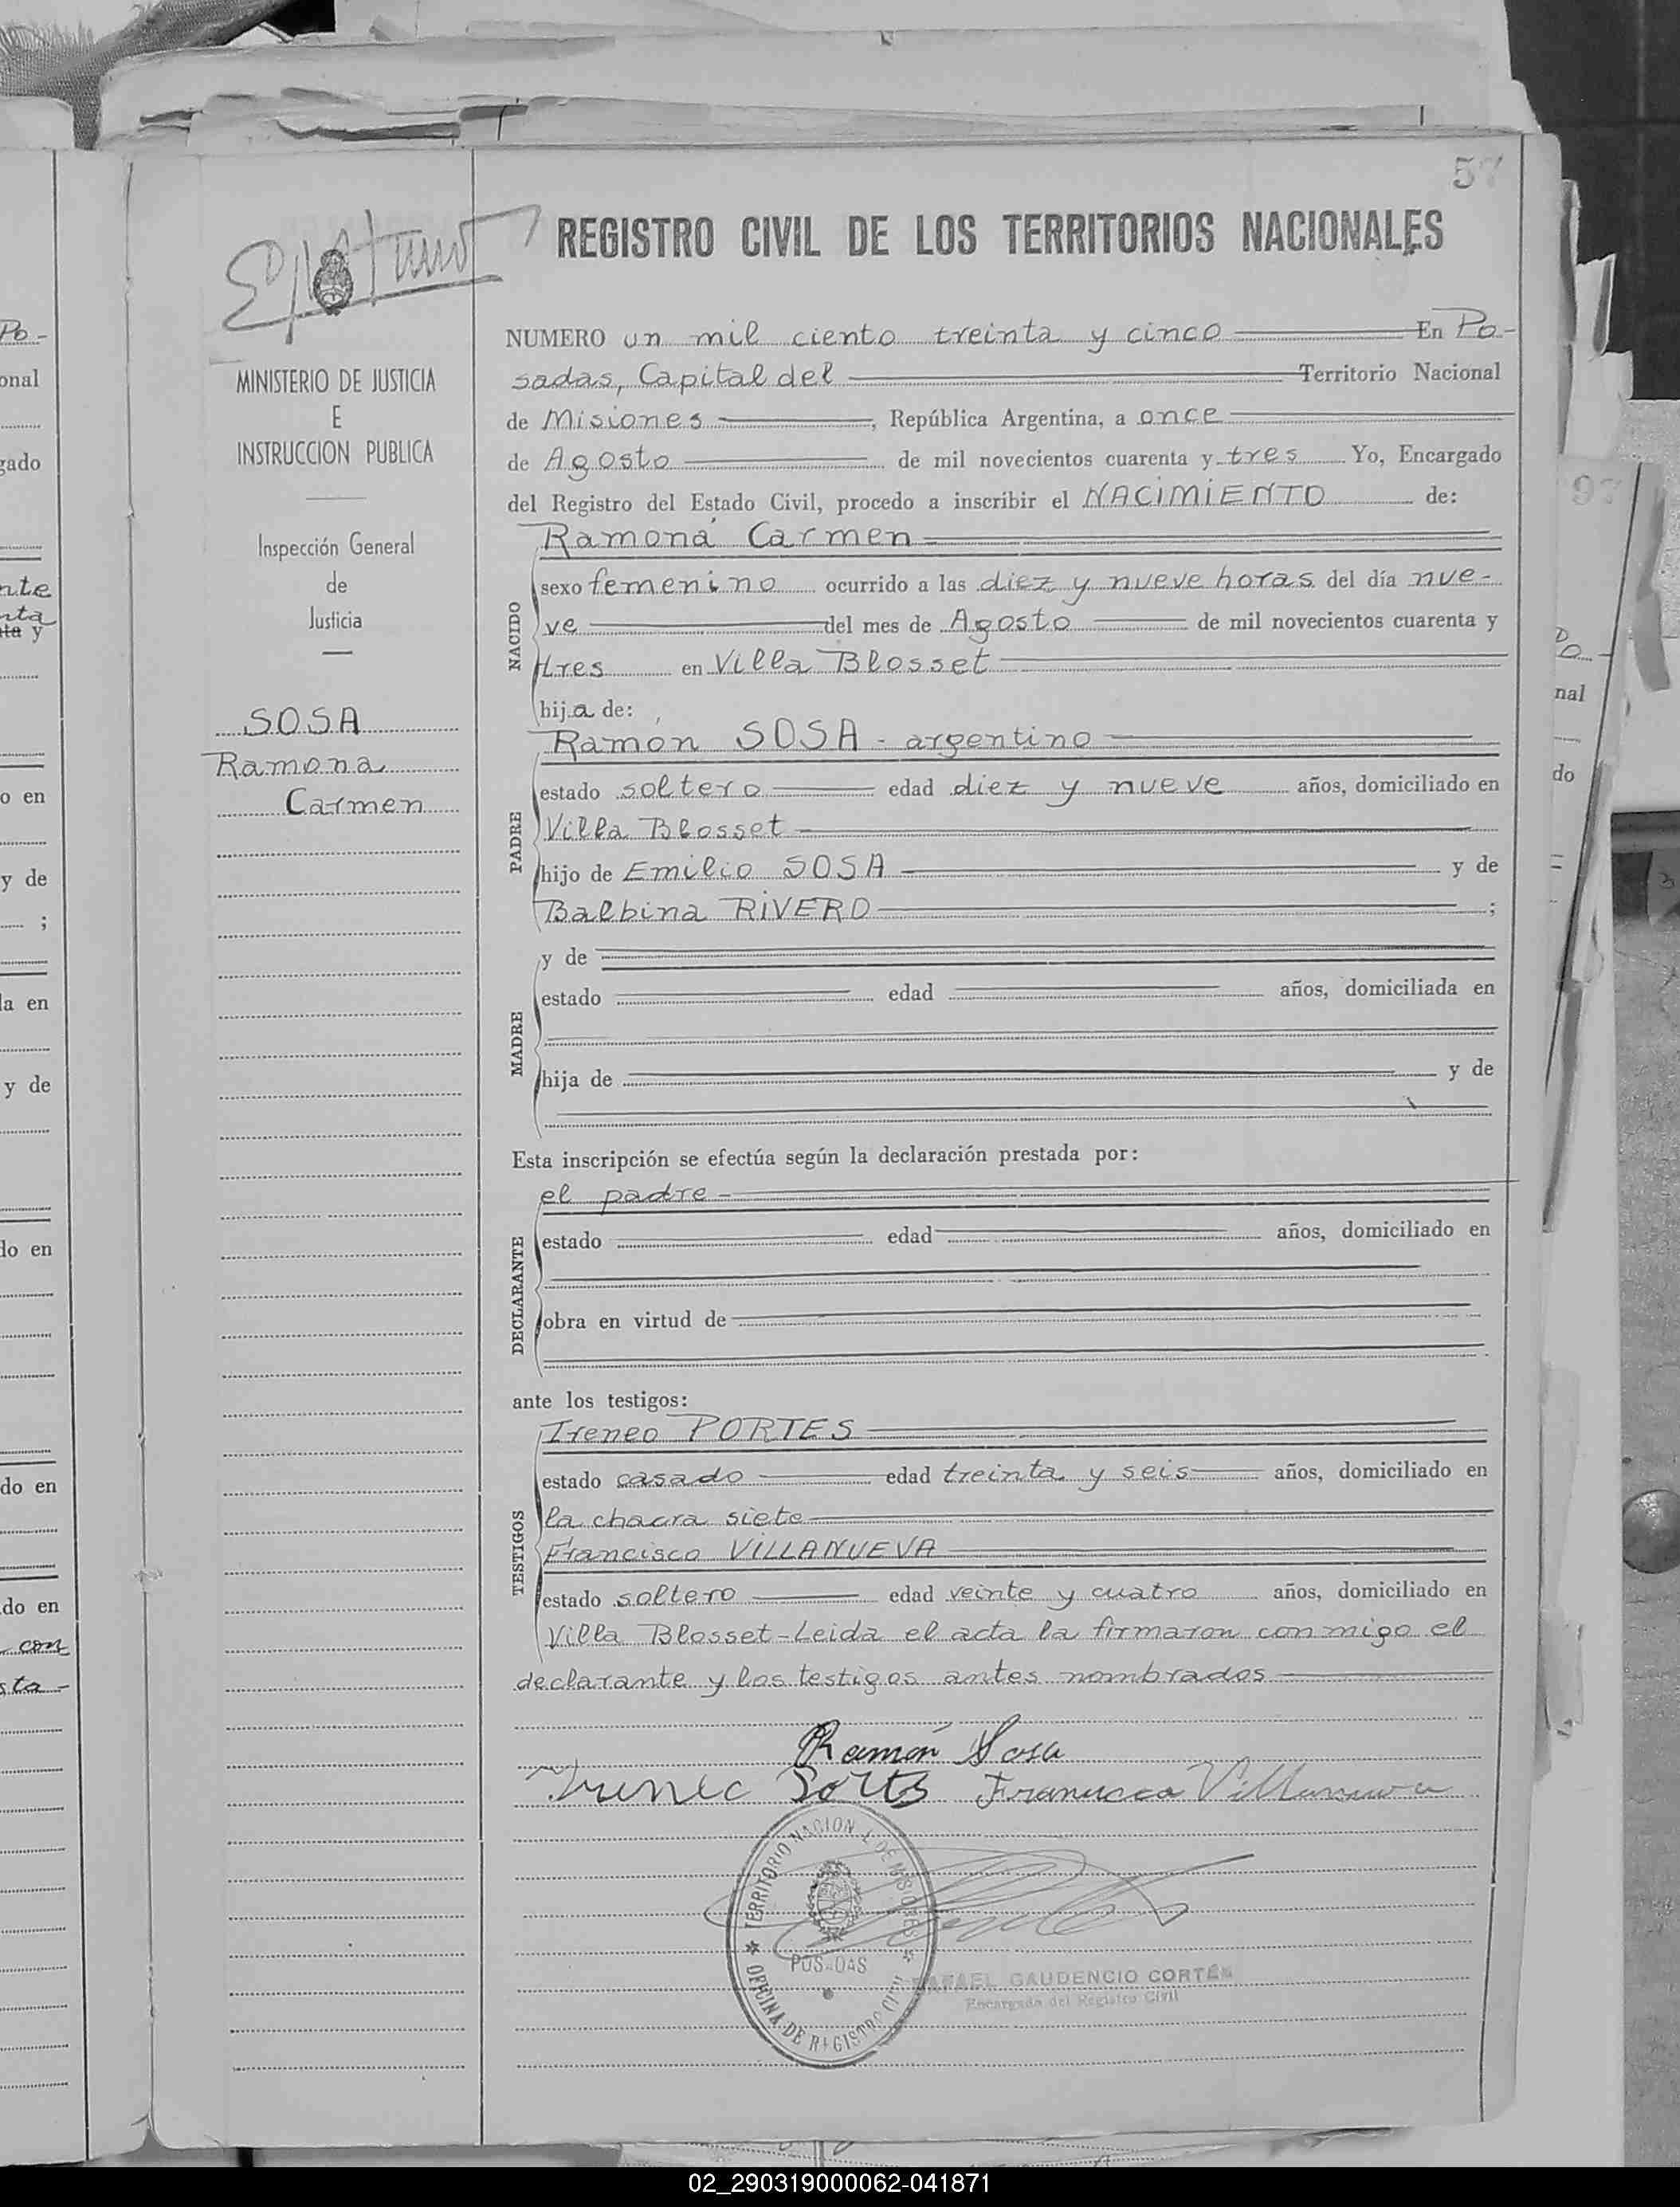 57
REGISTRO CIVIL DE LOS TERRITORIOS NACIONALES
MINISTERIO DE JUSTICIA
E
INSTRUCCION PUBLICA
Inspección General
de
Justicia
SOSA
Ramona
Carmen
NUMERO un mil ciento treinta y cinco En Po-
sadas, Capital del Territorio Nacional
de Misiones, República Argentina, a once
de Agosto de mil novecientos cuarenta y tres Yo, Encargado
del Registro del Estado Civil, procedo a inscribir el NACIMIENTO de:
Ramona Carmen
NACIDO
sexo femenino ocurrido a las diez y nueve horas del día nue-
ve del mes de Agosto de mil novecientos cuarenta y
tres en Villa Blosset
hija de:
Ramón SOSA - argentino
PADRE
estado soltero edad diez y nueve años, domiciliado en
Villa Blosset
hijo de Emilio SOSA y de
Balbina RIVERO ;
MADRE
y de
estado edad años, domiciliada en
hija de y de
Esta inscripción se efectúa según la declaración prestada por:
el padre
DECLARANTE
estado edad años, domiciliado en
obra en virtud de
ante los testigos:
Ireneo PORTES
TESTIGOS
estado casado edad treinta y seis años, domiciliado en
la chacra siete
Francisco VILLANUEVA
estado soltero edad veinte y cuatro años, domiciliado en
Villa Blosset-Leida el acta la firmaron conmigo el
declarante y los testigos antes nombrados
Ramón Sosa
Francisco Villanueva
TERRITORIO NACIONAL DE MISIONES
POSADAS
OFICINA DE REGISTRO CIVIL
RAFAEL GAUDENCIO CORTÉS
Encargado del Registro Civil
02_290319000062-041871